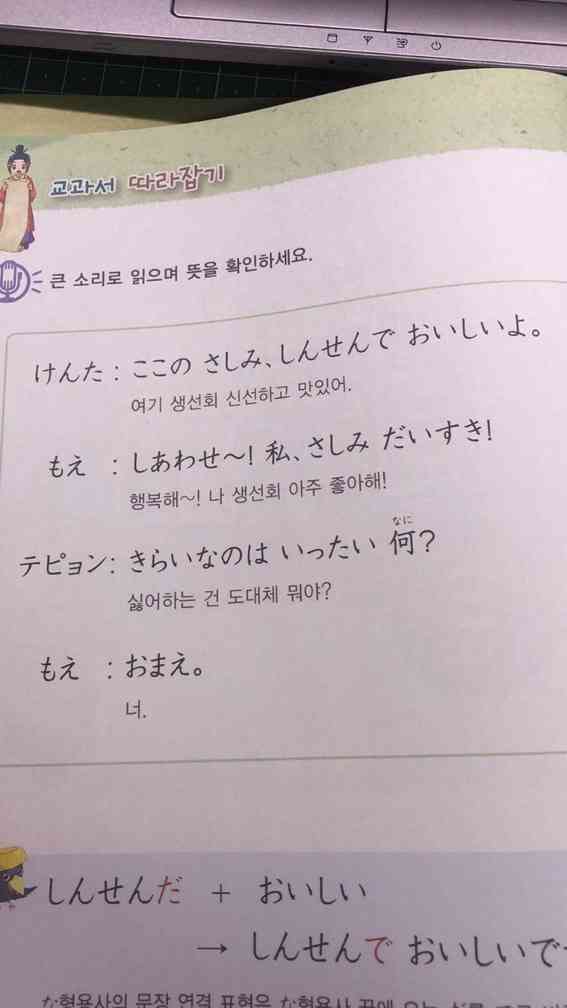 교과서 따라잡기
큰 소리로 읽으며 뜻을 확인하세요.
けんた : ここの さしみ、しんせんで おいしいよ。
여기 생선회 신선하고 맛있어.
もえ : しあわせ~! 私、さしみ だいすき!
행복해~! 나 생선회 아주 좋아해!
なに
テピョン: きらいなのは いったい 何?
싫어하는 건 도대체 뭐야?
もえ : おまえ。
너.
しんせんだ + おいしい
→ しんせんで おいしいで
な형용사의 문장 연결 표현은 な형용사 끝에 오는